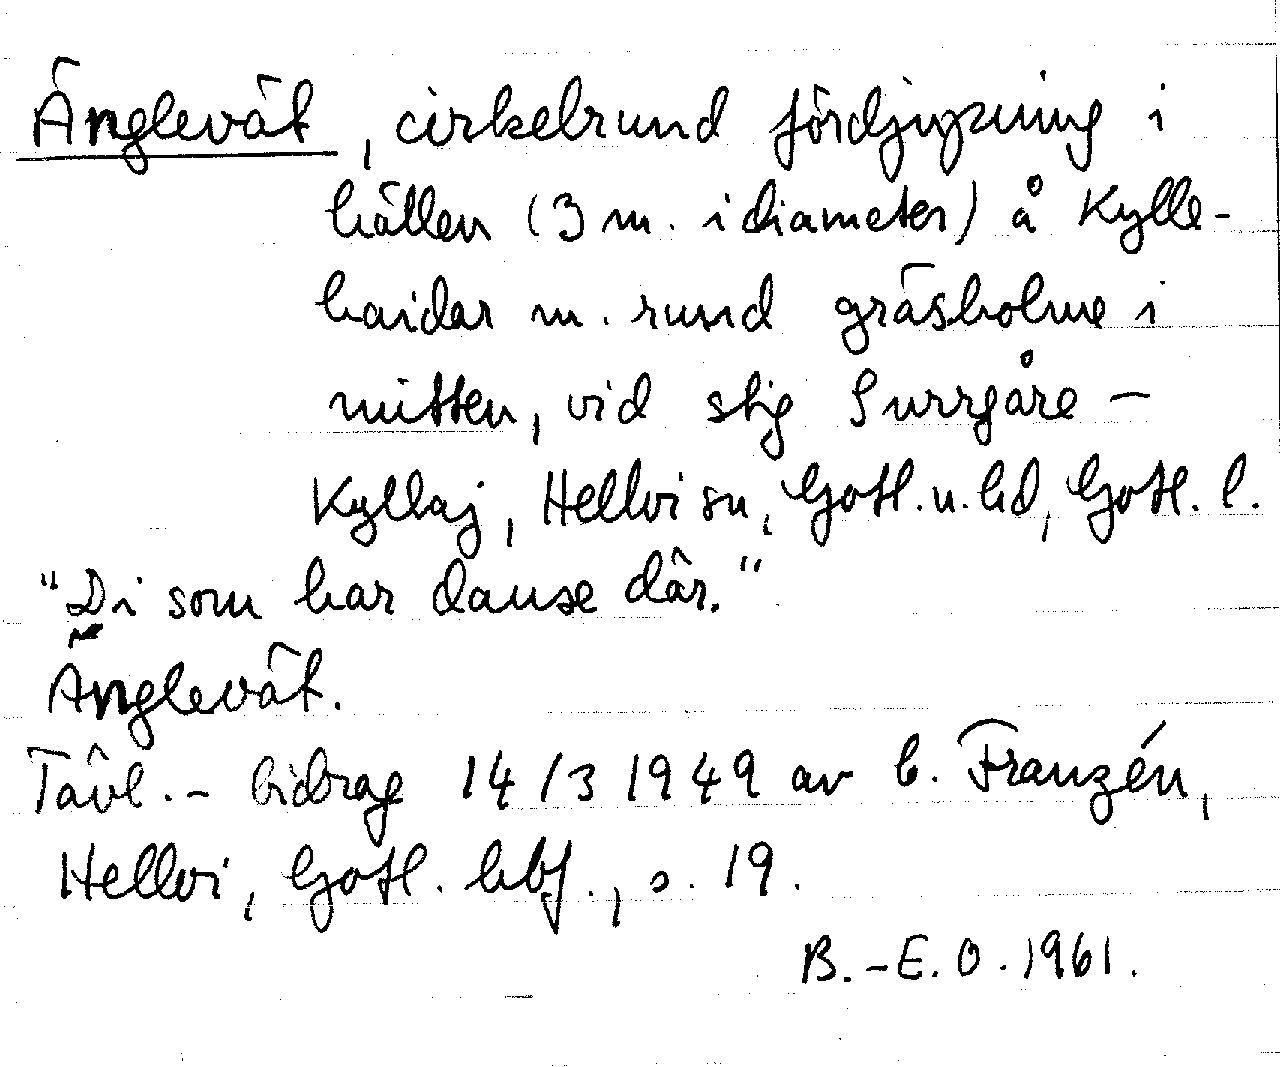 Änglevät, cirkelrund fördjupning i
hällen (3 m. i diameter) å Kylle-
haidar m. rund gräsholme i
mitten, vid stig Surrgåre –
Kyllaj, Hellvi sn, Gotl. n. hd, Gotl. l.
"Di som har danse där."
Änglevät.
Tävl.- bidrag 14/3 1949 av b. Franzén,
Hellvi, Gotl. hbf., s. 19.
B.-E. O. 1961.